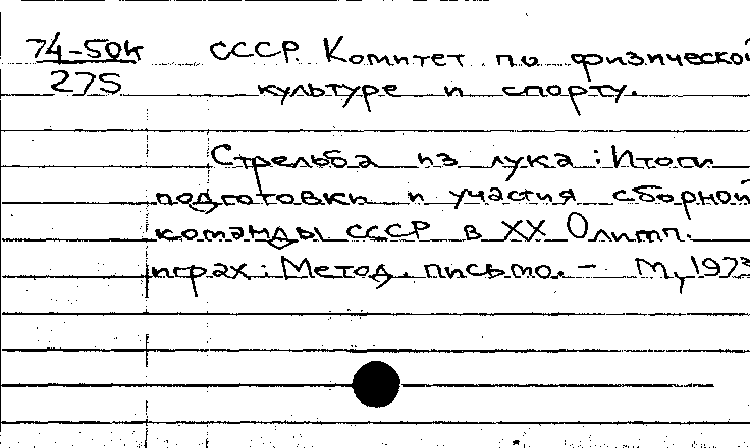 74-50к СССР. Комитет по физической
275 культуре и спорту.
Стрельба из лука : Итоги
подготовки и участия сборной
команды СССР в XX Олимп.
играх : Метод. письмо. - М, 1973